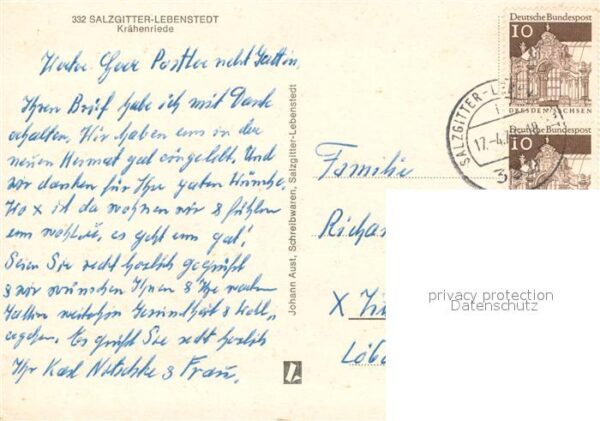 332 SALZGITTER-LEBENSTEDT
Krähenriede
Herr Postler nebst Gattin,
Ihren Brief habe ich mit Dank
erhalten. Wir haben uns in der
neuen Heimat gut eingelebt. Und
wir danken für Ihre guten Wünsche.
Wo x ist da wohnen wir & fühlen
uns wohl, es geht uns gut!
Seien Sie recht herzlich gegrüßt
& wir wünschen Ihnen & Ihre
Gattin weiterhin Gesundheit & Wohl-
ergehen. Es grüßt Sie recht herzlich
Ihr Karl Nitschke & Frau.
Johann Aust, Schreibwaren, Salzgitter-Lebenstedt
Deutsche Bundespost
10
DRESDEN/SACHSEN
Deutsche Bundespost
10
SALZGITTER-LEBEN
17.-4.
Familie
Richa
X
Löb
privacy protection
Datenschutz